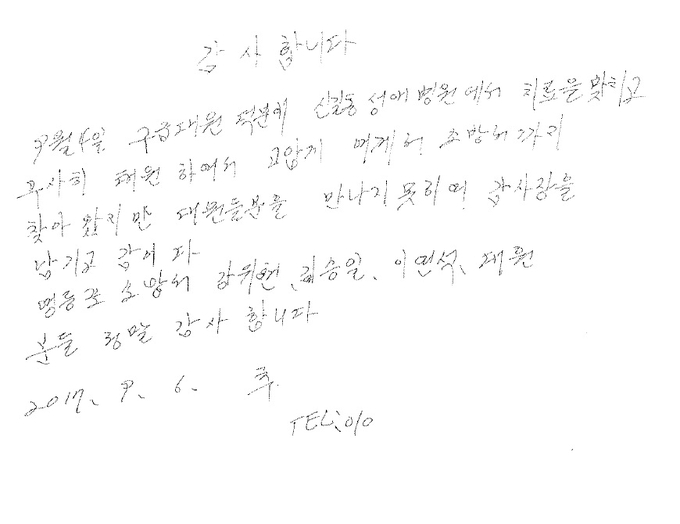 감사합니다
9월4일 구급대원 덕분에 신길동 성애병원에서 치료을 맞치고
무사히 퇴원 하여서 고맙게 여게서 소방서 까지
찾아 왔지만 대원들분을 만나지 못하여 감사장을
남기고 감이다
영등포 소방서 이면석, 대원
분들 정말 감사 합니다
2017. 9. 6. 추
TEL:010